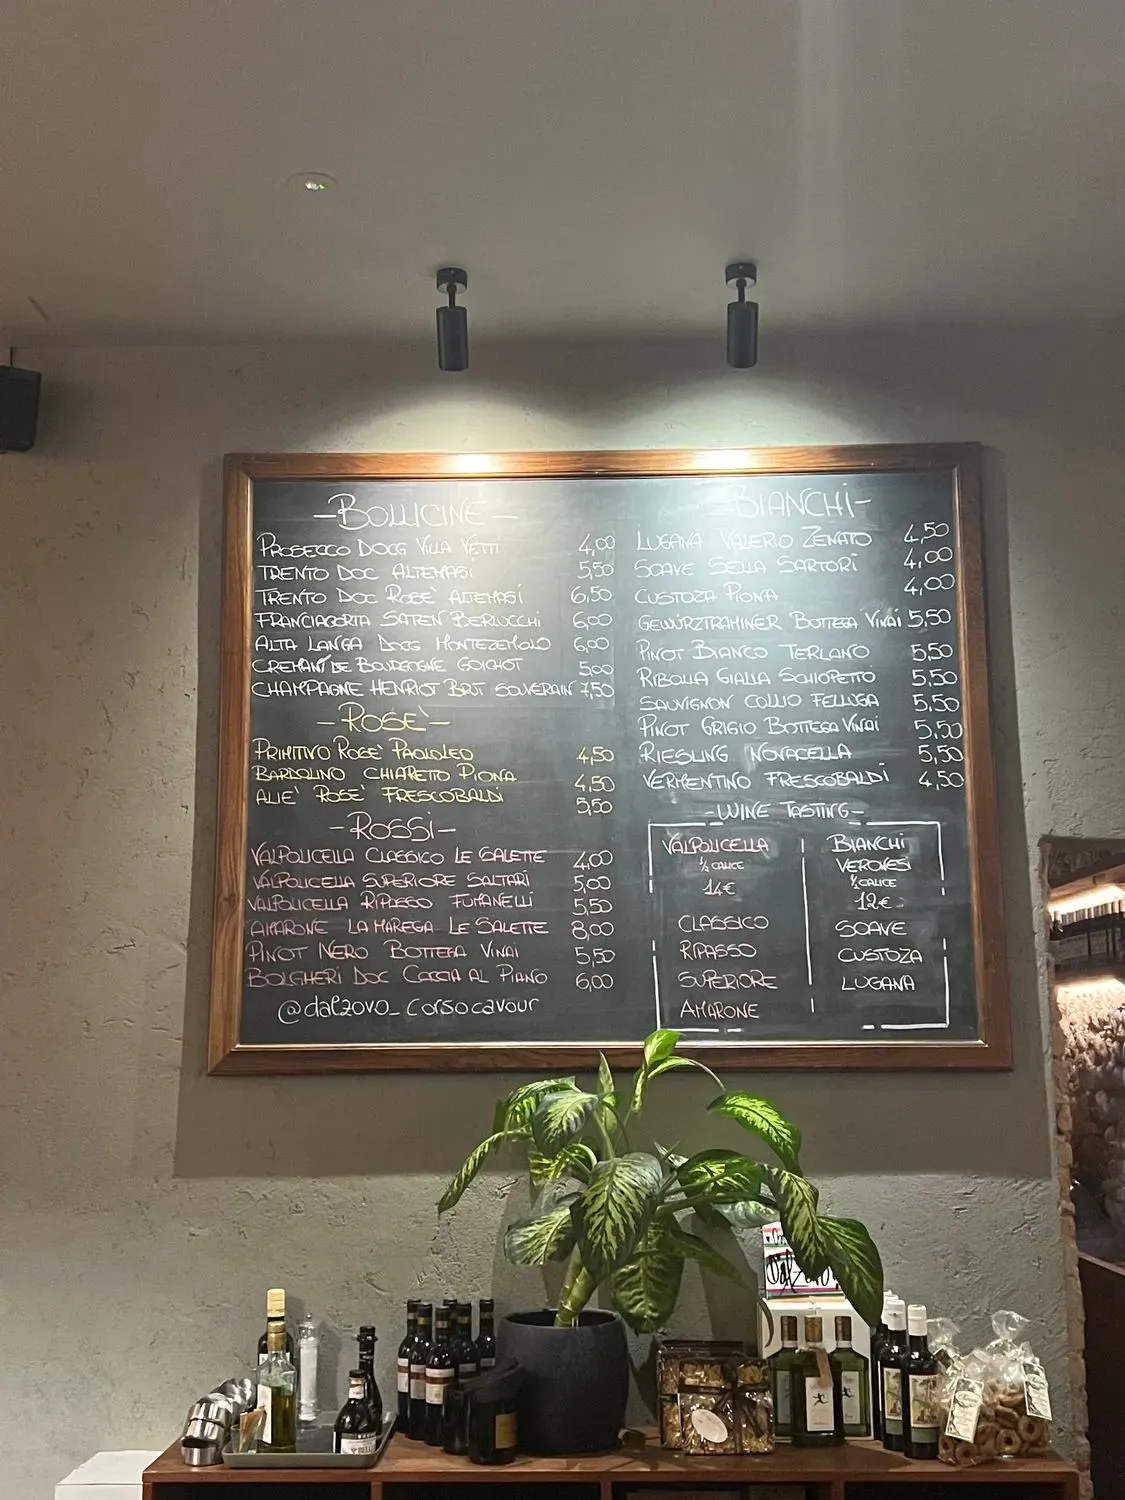 -BOLLICINE-
PROSECCO DOCG VILLA VETTI 4,00
TRENTO DOC ALTEMASI 5,50
TRENTO DOC ROSE' ALTEMASI 6,50
FRANCIACORTA SATEN BERLUCCHI 6,00
ALTA LANGA DOCG MONTEZEMOLO 6,00
CREMANT DE BOURGOGNE GOICHOT 5,00
CHAMPAGNE HENRIOT BRUT SOUVERAIN 7,50
-ROSE'-
PRIMITIVO ROSE' PAOLOLEO 4,50
BARDOLINO CHIARETTO PIONA 4,50
ALIE' ROSE' FRESCOBALDI 5,50
-ROSSI-
VALPOLICELLA CLASSICO LE SALETTE 4,00
VALPOLICELLA SUPERIORE SALTARI 5,00
VALPOLICELLA RIPASSO FUMANELLI 5,50
AMARONE LA MAREGA LE SALETTE 8,00
PINOT NERO BOTTEGA VINAI 5,50
BOLGHERI DOC CACCIA AL PIANO 6,00
@dalzovo_corsocavour
-BIANCHI-
LUGANA VALERIO ZENATO 4,50
SOAVE SELLA SARTORI 4,00
CUSTOZA PIONA 4,00
GEWÜRZTRAMINER BOTTEGA VINAI 5,50
PINOT BIANCO TERLANO 5,50
RIBOLLA GIALLA SCHIOPETTO 5,50
SAUVIGNON COLLIO FELLUGA 5,50
PINOT GRIGIO BOTTEGA VINAI 5,50
RIESLING NOVACELLA 5,50
VERMENTINO FRESCOBALDI 4,50
-WINE TASTING-
VALPOLICELLA
½ CALICE
14€
CLASSICO
RIPASSO
SUPERIORE
AMARONE
BIANCHI
VERONESI
½ CALICE
12€
SOAVE
CUSTOZA
LUGANA
Dal Zovo